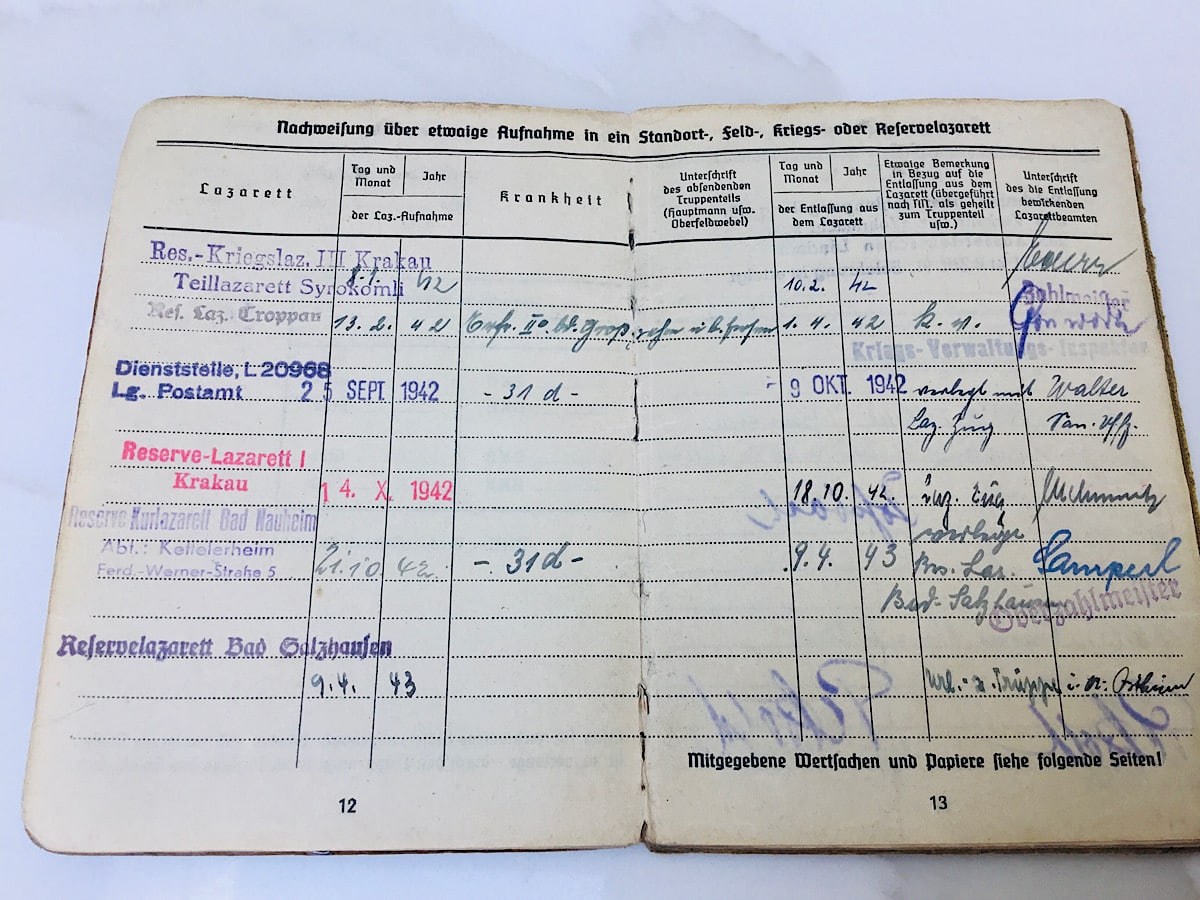 Nachweisung über etwaige Aufnahme in ein Standort-, Feld-, Kriegs- oder Reservelazarett
Lazarett
Tag und Monat
Jahr
der Laz.-Aufnahme
Krankheit
Unterschrift
des absendenden
Truppenteils
(Hauptmann usw.
Oberfeldwebel)
Tag und
Monat
Jahr
der Entlassung aus
dem Lazarett
Etwaige Bemerkung
in Bezug auf die
Entlassung aus dem
Lazarett (übergeführt
nach NN. als geheilt
zum Truppenteil
usw.)
Unterschrift
des die Entlassung
bewirkenden
Lazarettbeamten
Res.-Kriegslaz. III Krakau
Teillazarett Syrokomli 42 10.2. 42
Zahlmeister
Res. Laz. Troppau 13. 2. 42 Erfr. II° bd. 1. 4. 42 k. v.
Kriegs-Verwaltungs-Inspektor
Dienststelle, L 20968
Lg. Postamt 25 SEPT. 1942 - 31 d - - 9 OKT. 1942 verlegt mit Walter
Laz. Zug San. Uffz.
Reserve-Lazarett I
Krakau 14. X. 1942 18.10. 42.
Reserve Kurlazarett Bad Nauheim
Abt.: Kettelerheim
Ferd.-Werner-Straße 5 21.10. 42. - 31d - 9.4. 43 Res. Laz.
Bad-Salzhausen
Oberzahlmeister
Reservelazarett Bad Salzhausen
9.4. 43
Mitgegebene Wertsachen und Papiere siehe folgende Seiten!
12
13